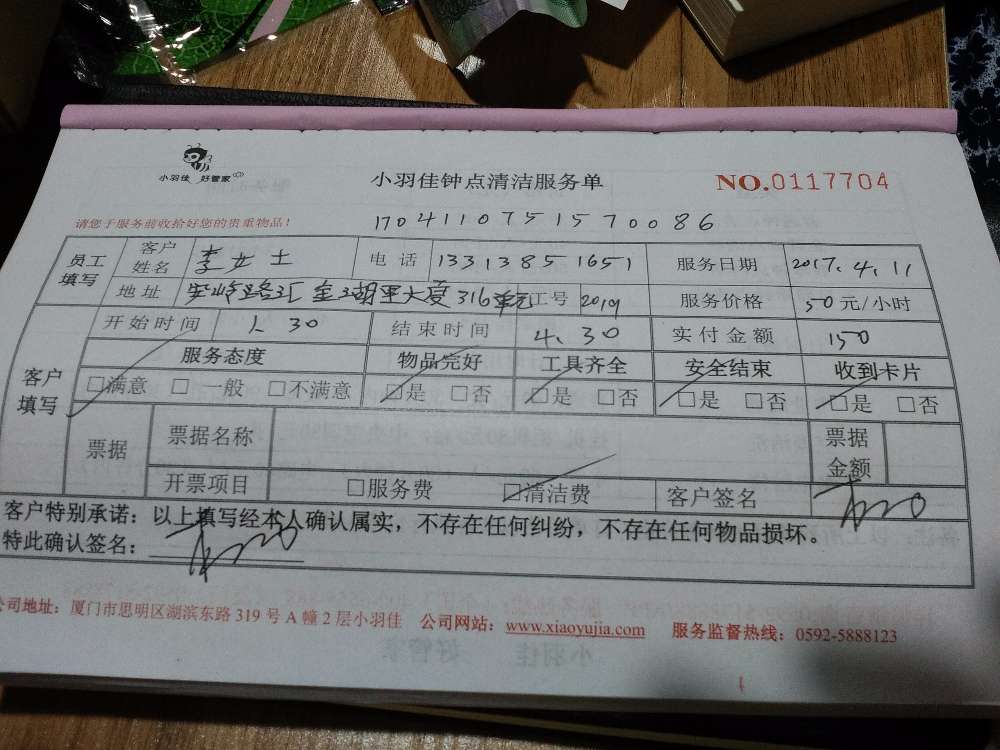 小羽佳 好管家
小羽佳钟点清洁服务单
NO.0117704
请您于服务前收拾好您的贵重物品!
170411075157 0086
员工填写 客户姓名 李女士 电话 13313851651 服务日期 2017.4.11
地址 安岭路汇金湖里大厦316单元 工号 2019 服务价格 50元/小时
客户填写 开始时间 1.30 结束时间 4.30 实付金额 150
服务态度 物品完好 工具齐全 安全结束 收到卡片
□满意 □一般 □不满意 □是 □否 □是 □否 □是 □否 □是 □否
票据 票据名称 票据金额
开票项目 □服务费 □清洁费 客户签名
客户特别承诺：以上填写经本人确认属实，不存在任何纠纷，不存在任何物品损坏。
特此确认签名：
公司地址：厦门市思明区湖滨东路319号A幢2层小羽佳 公司网站：www.xiaoyujia.com 服务监督热线：0592-5888123